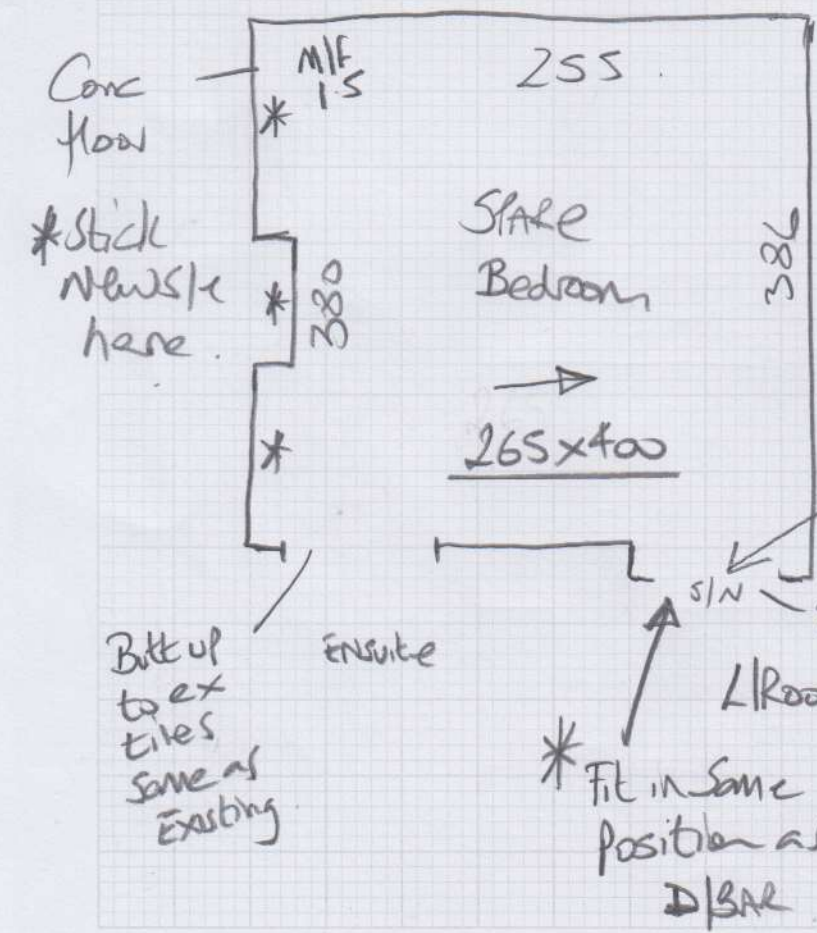 Conc
floor
M/F
1.5
255
*
* Stick
New S/E
here.
*
380
Spare
Bedroom
386
*
265x400
S/N
Butt up
to ex
tiles
Same as
Existing
Ensuite
L/Roo
* Fit in Same
Position as
D/BAR